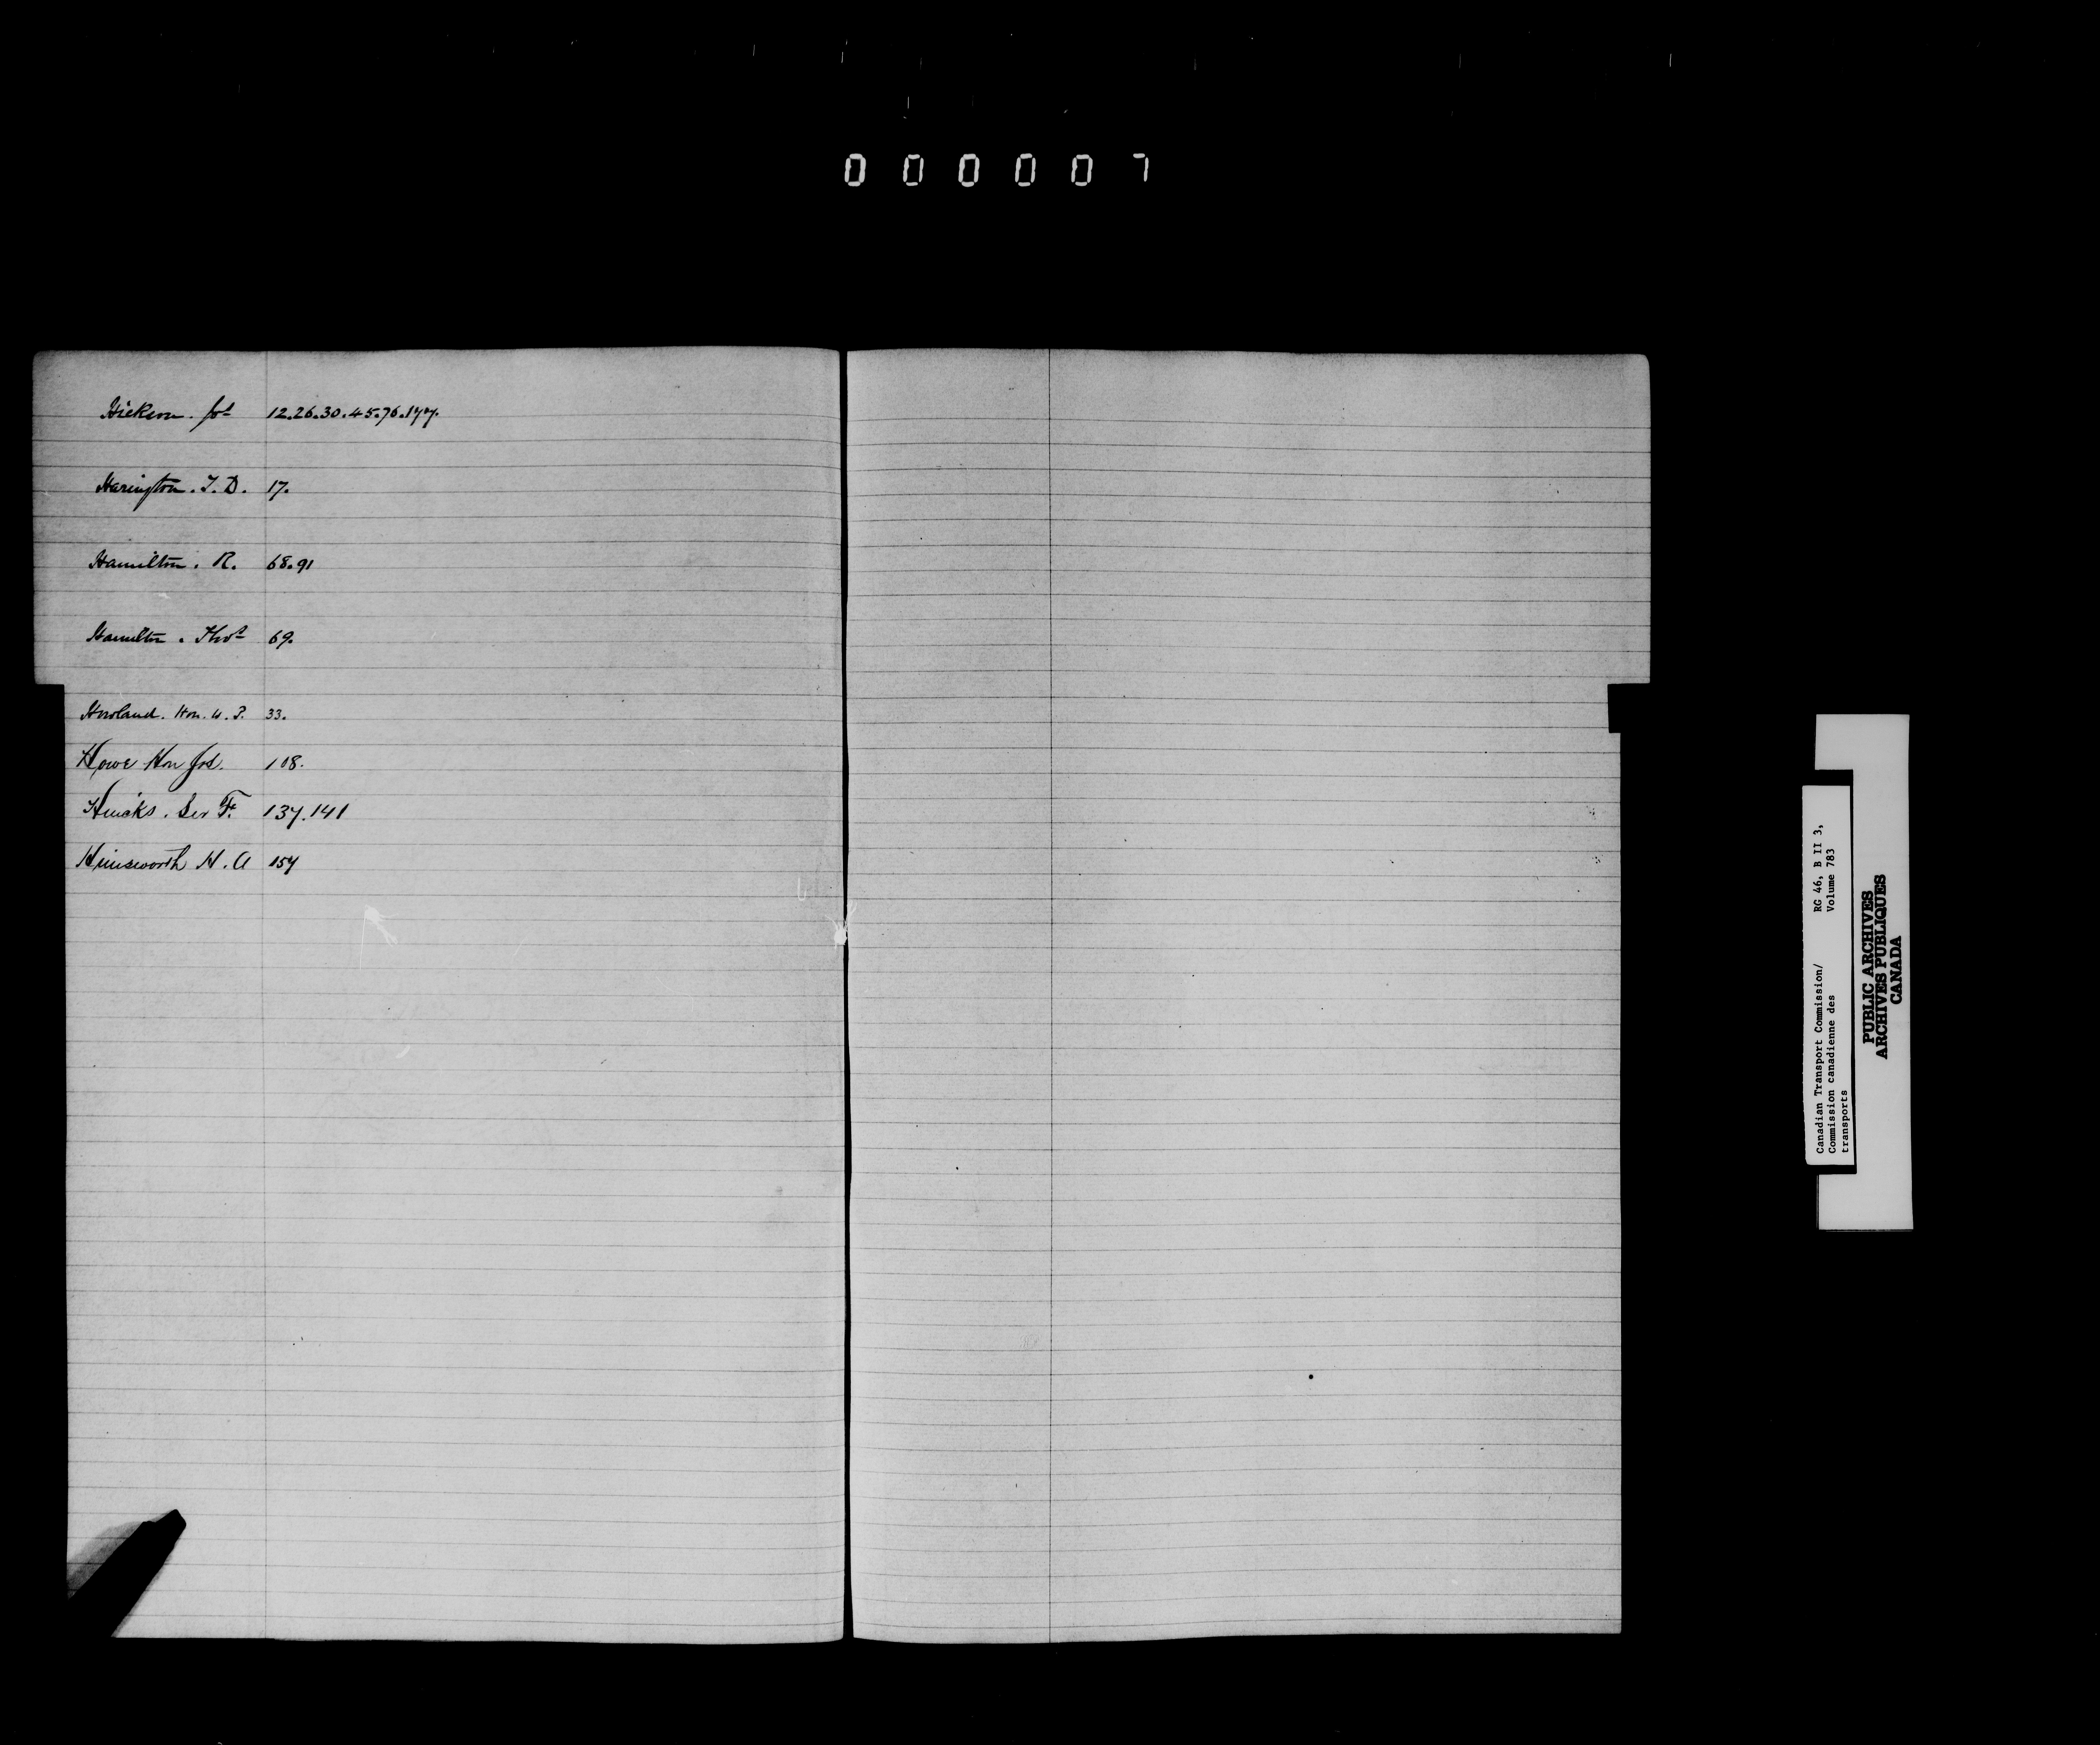 000007
Hickson. Jos 12.26.30.45.76.177.
Harington. T. D. 17.
Hamilton. R. 68.91
Hamilton. Thos 69.
Howland. Hon. W. P. 33.
Howe Hon Jos. 108.
Hincks. Sir F. 137.141
Himsworth H. A 157
Canadian Transport Commission/ RG 46, B II 3,
Commission canadienne des Volume 783
transports
PUBLIC ARCHIVES
ARCHIVES PUBLIQUES
CANADA